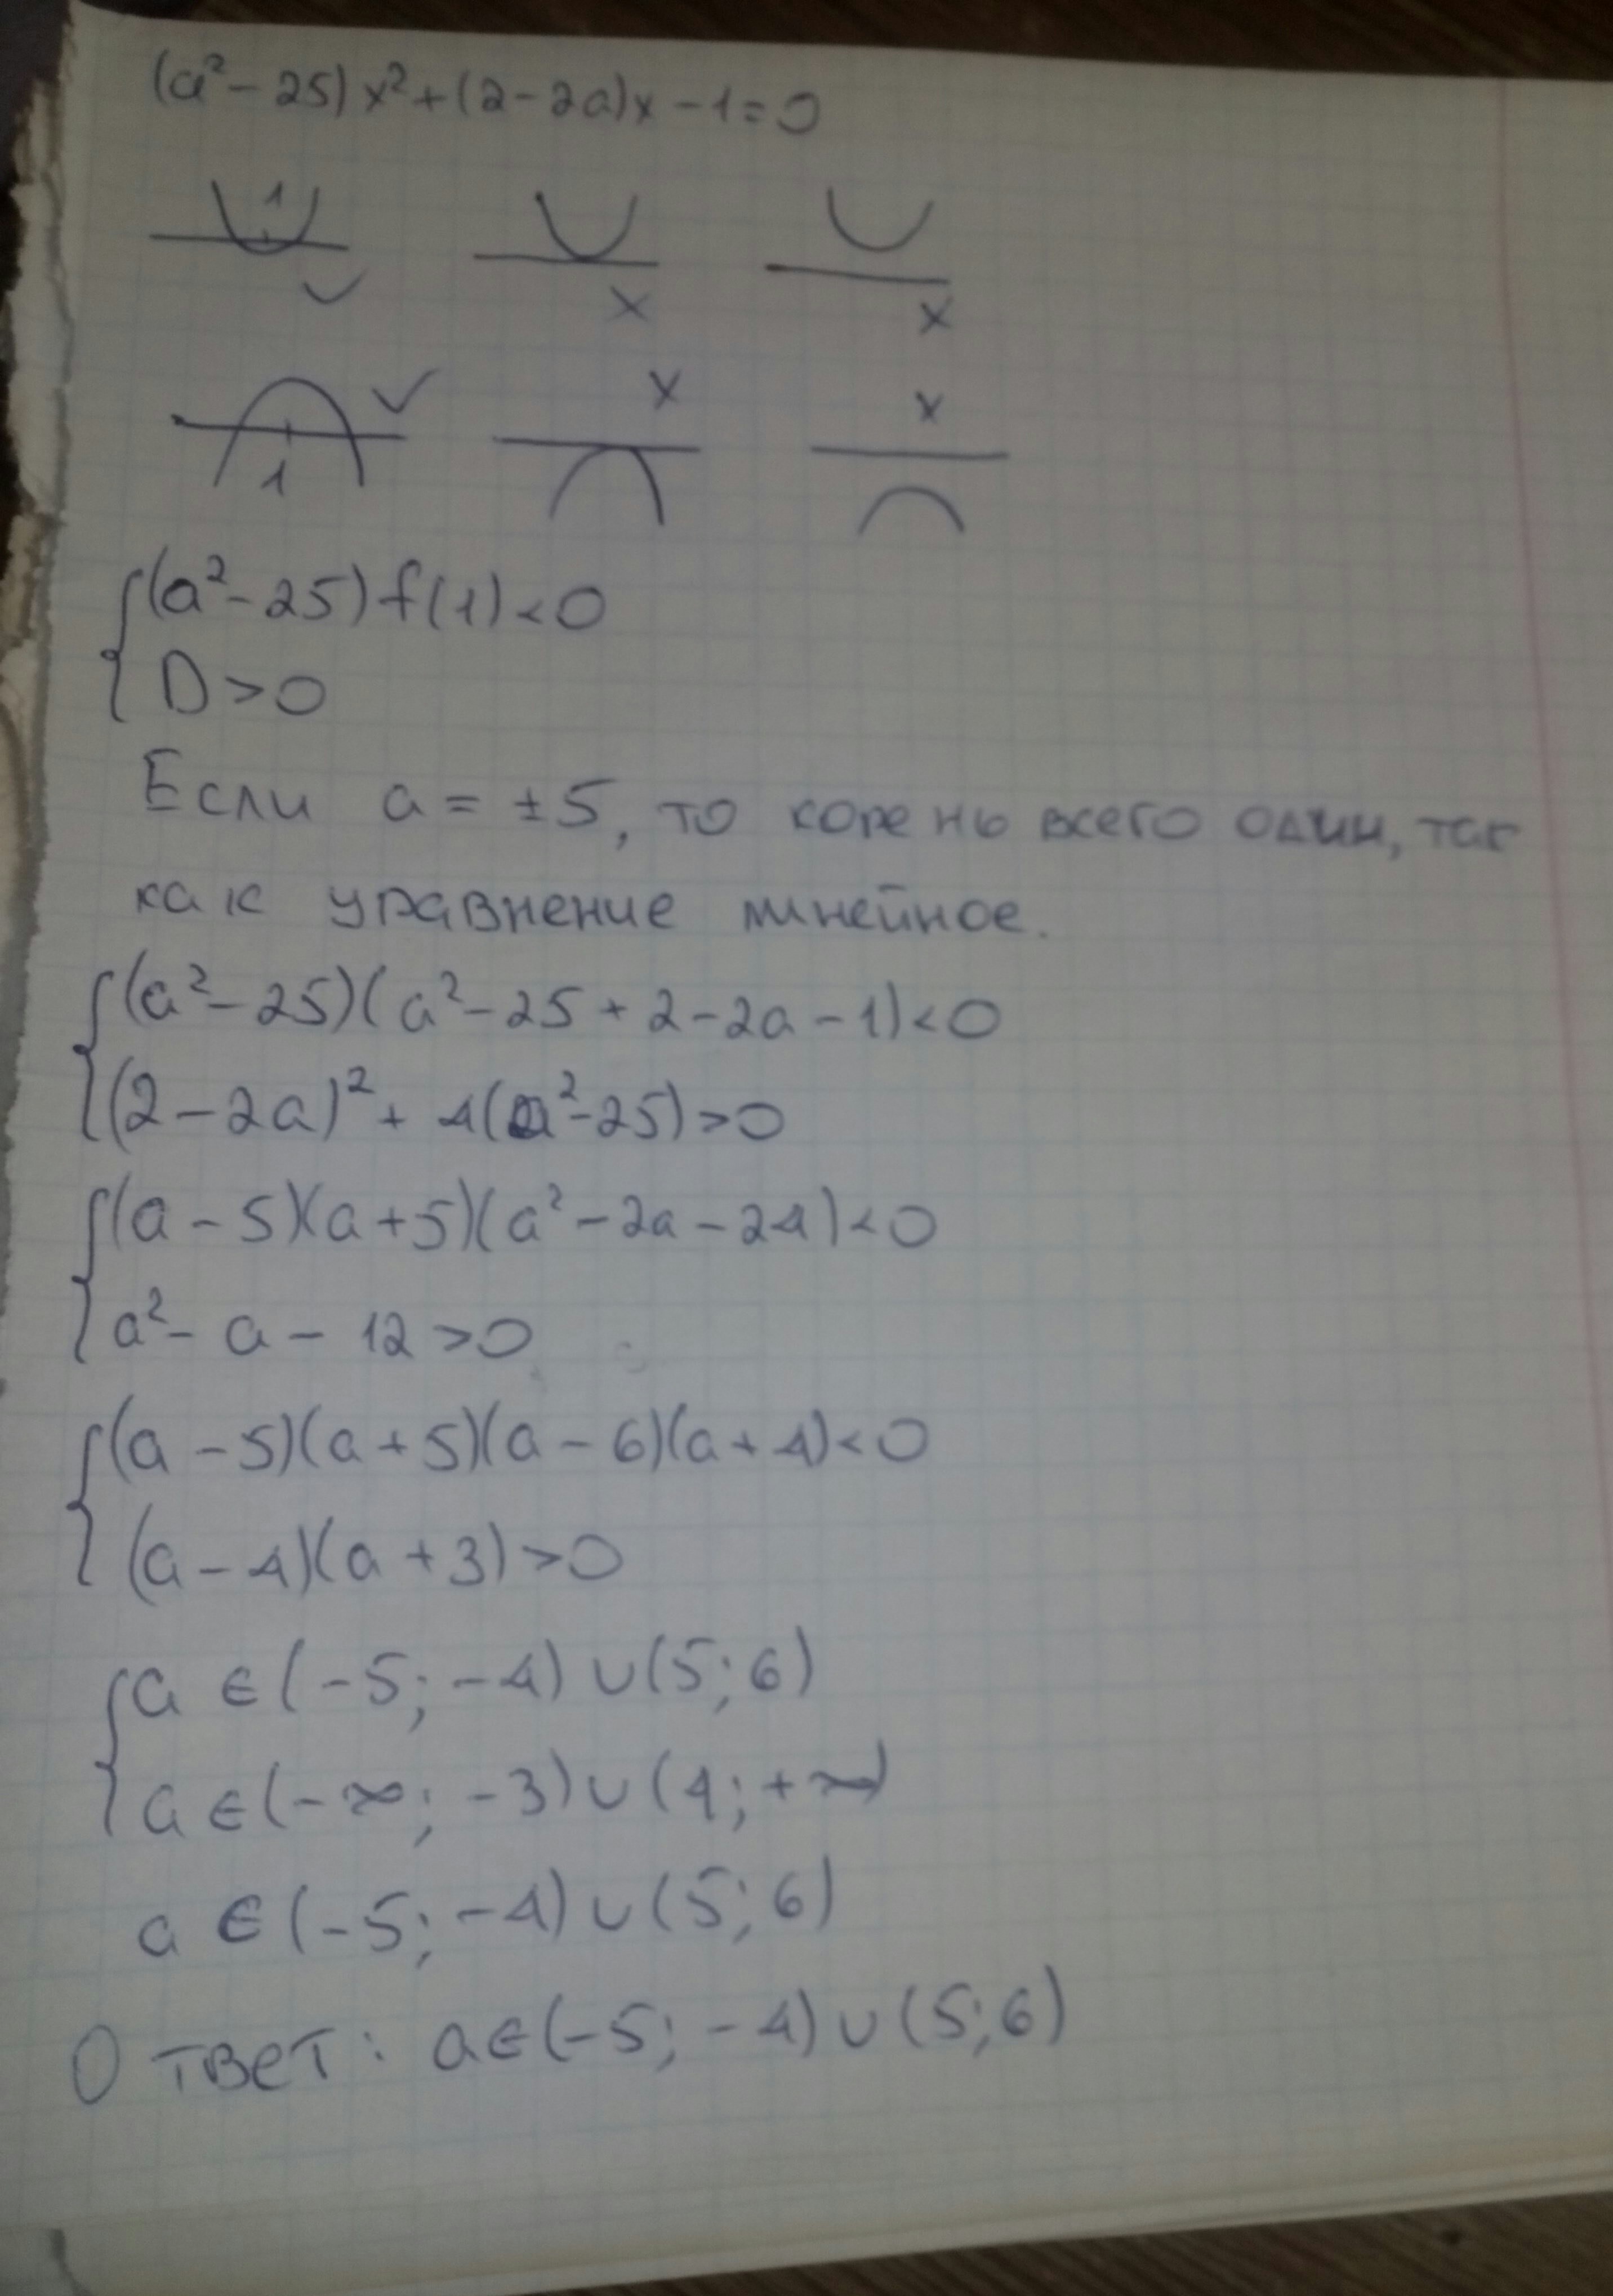 (a² - 25)x² + (2 - 2a)x - 1 = 0
1
x x
x x
1
(a² - 25) f(1) < 0
D > 0
Если a = ±5, то корень всего один, так
как уравнение линейное.
(a² - 25)(a² - 25 + 2 - 2a - 1) < 0
(2 - 2a)² + 4(a² - 25) > 0
(a - 5)(a + 5)(a² - 2a - 24) < 0
a² - a - 12 > 0
(a - 5)(a + 5)(a - 6)(a + 4) < 0
(a - 4)(a + 3) > 0
a ∈ (-5; -4) ∪ (5; 6)
a ∈ (-∞; -3) ∪ (4; +∞)
a ∈ (-5; -4) ∪ (5; 6)
Ответ: a ∈ (-5; -4) ∪ (5; 6)